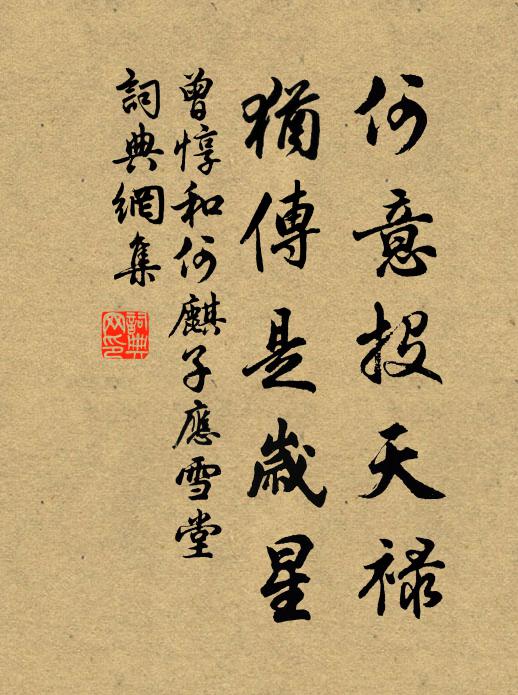 何意投天祿
猶傳是歲星
曾惇和何麒子應雪堂
詞典網集
詞典網印